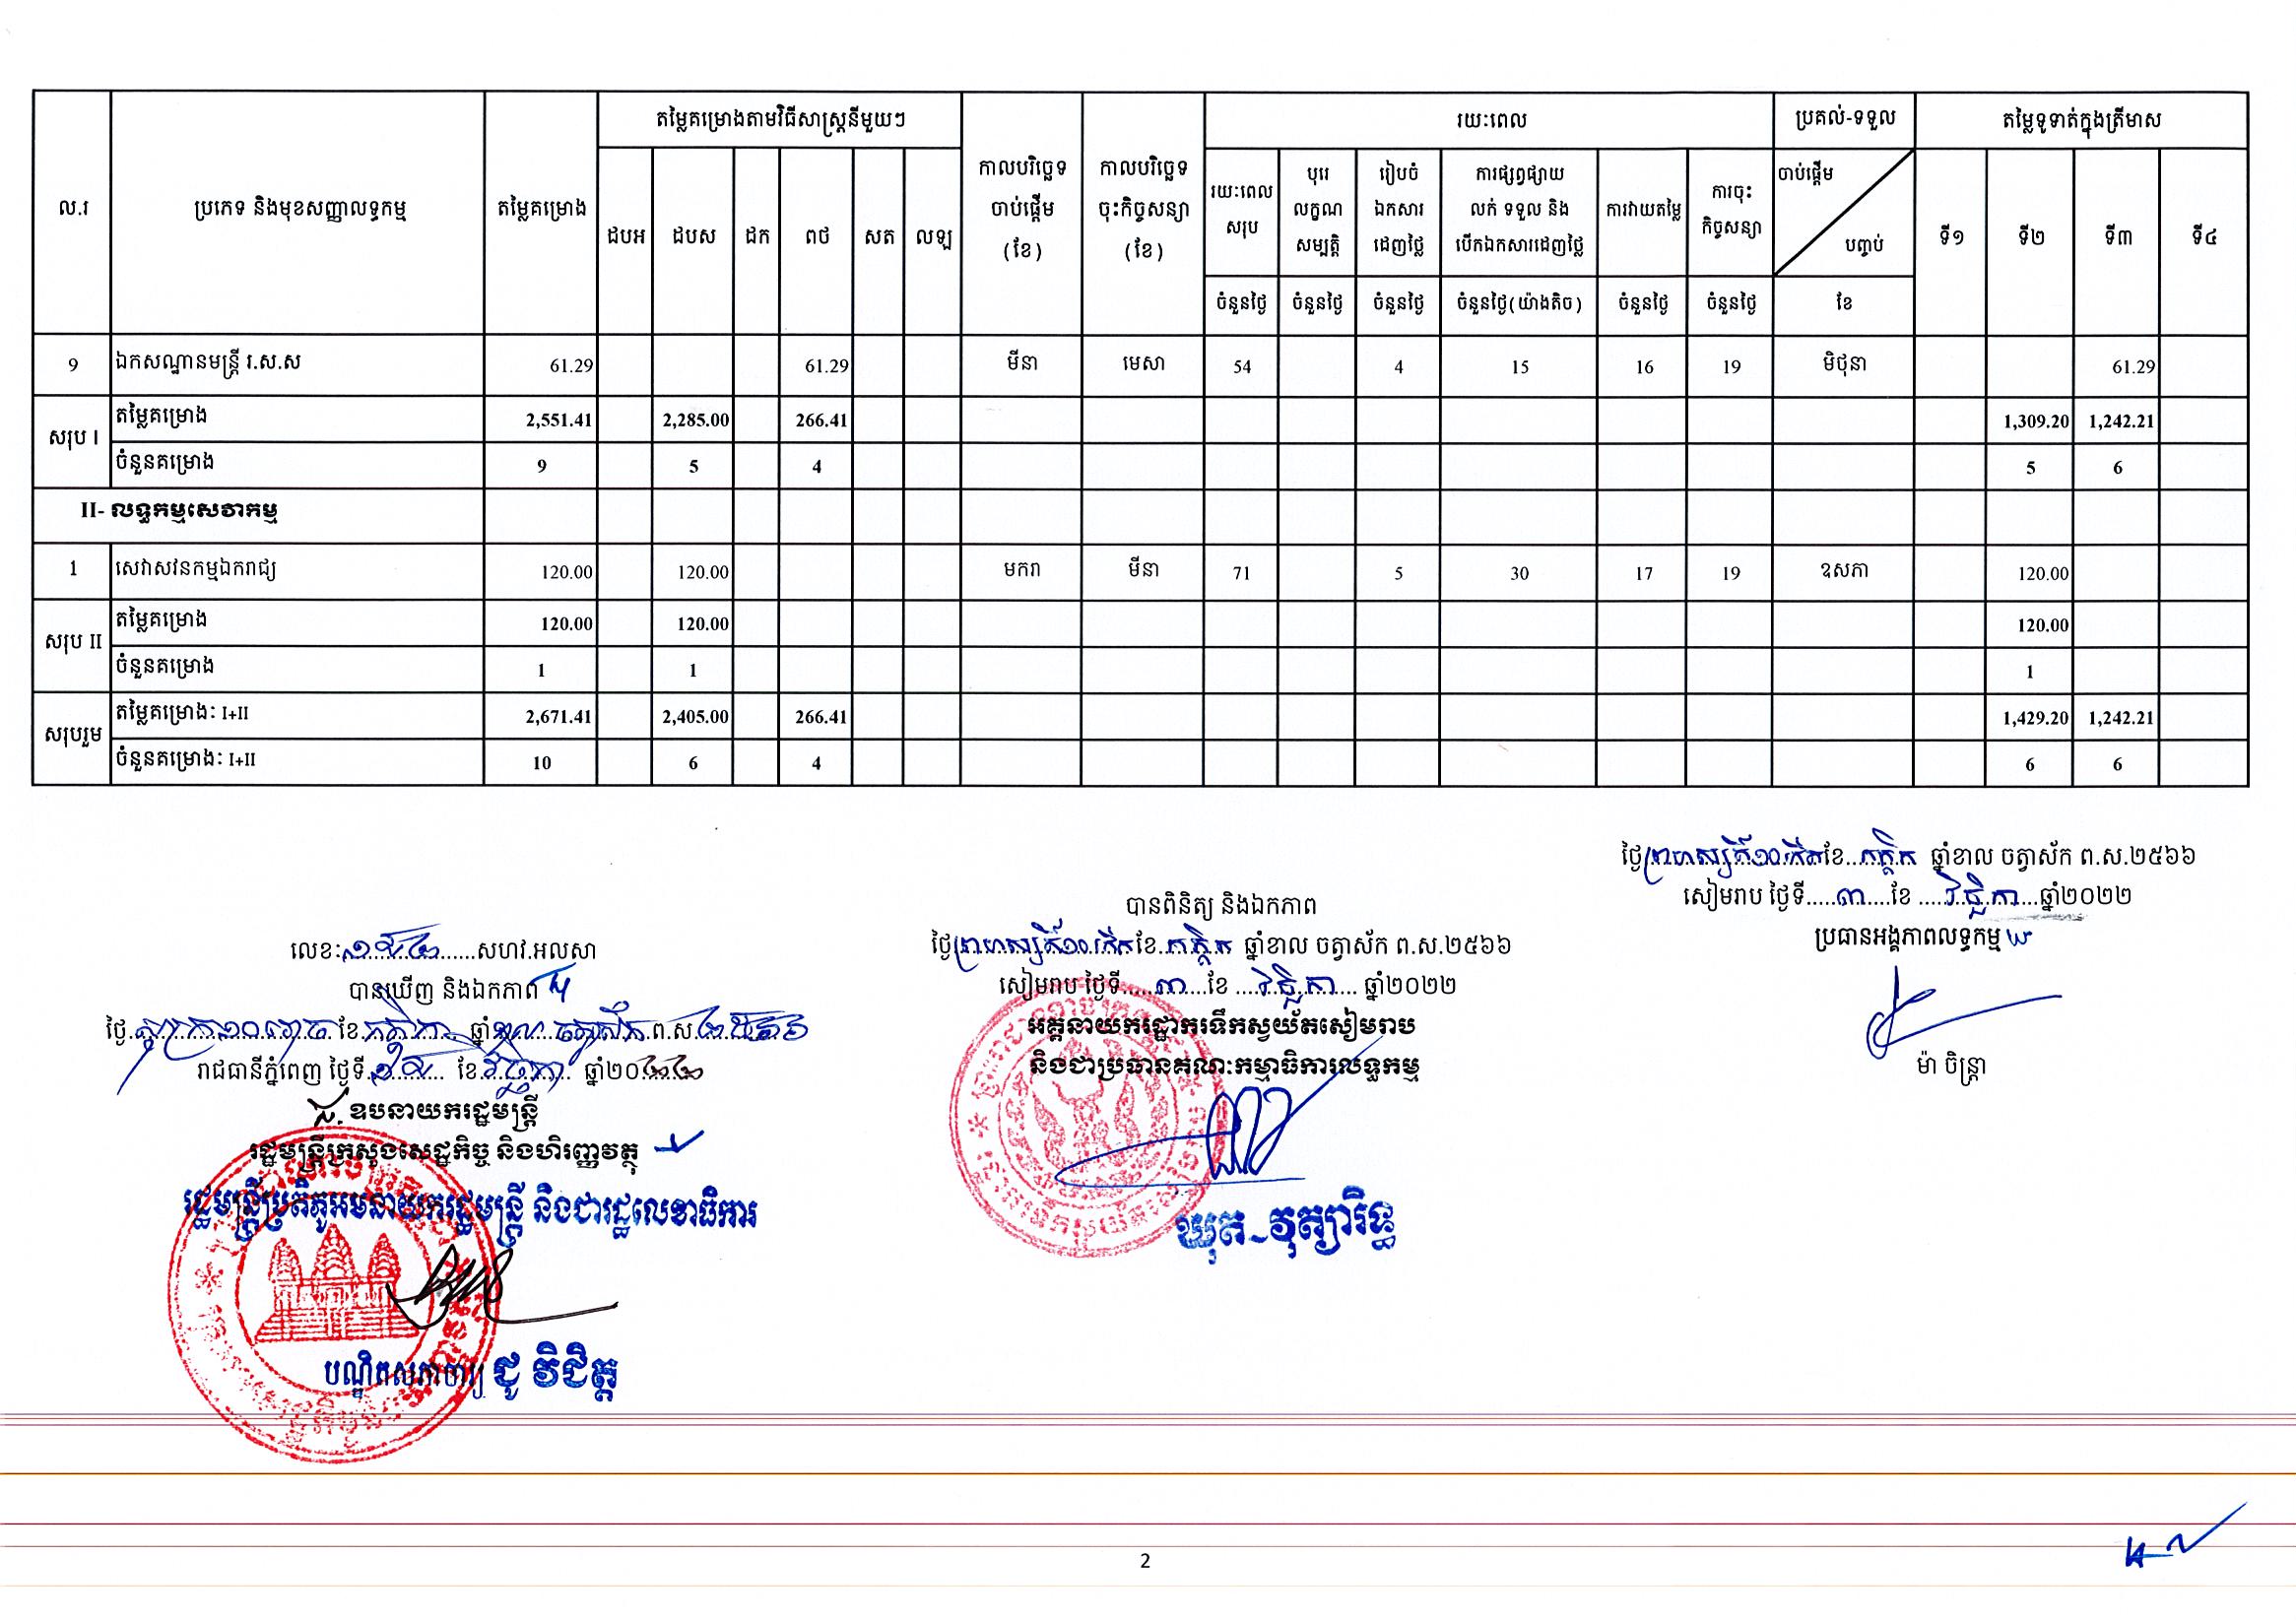 ល.រ ប្រភេទ និងមុខសញ្ញាលទ្ធកម្ម តម្លៃគម្រោង តម្លៃគម្រោងតាមវិធីសាស្ត្រនីមួយៗ កាលបរិច្ឆេទ ចាប់ផ្ដើម (ខែ) កាលបរិច្ឆេទ ចុះកិច្ចសន្យា (ខែ) រយៈពេល ប្រគល់-ទទួល តម្លៃទូទាត់ក្នុងត្រីមាស
ដបអ ដបស ដក ពថ សត លឡ រយៈពេល សរុប បុរេ លក្ខណ សម្បត្តិ រៀបចំ ឯកសារ ដេញថ្លៃ ការផ្សព្វផ្សាយ លក់ ទទួល និង បើកឯកសារដេញថ្លៃ ការវាយតម្លៃ ការចុះ កិច្ចសន្យា ចាប់ផ្ដើម បញ្ចប់ ទី១ ទី២ ទី៣ ទី៤
ចំនួនថ្ងៃ ចំនួនថ្ងៃ ចំនួនថ្ងៃ ចំនួនថ្ងៃ(យ៉ាងតិច) ចំនួនថ្ងៃ ចំនួនថ្ងៃ ខែ
9 ឯកសណ្ឋានមន្ត្រី រ.ស.ស 61.29 61.29 មីនា មេសា 54 4 15 16 19 មិថុនា 61.29
សរុប I តម្លៃគម្រោង 2,551.41 2,285.00 266.41 1,309.20 1,242.21
ចំនួនគម្រោង 9 5 4 5 6
II- លទ្ធកម្មសេវាកម្ម
1 សេវាសវនកម្មឯករាជ្យ 120.00 120.00 មករា មីនា 71 5 30 17 19 ឧសភា 120.00
សរុប II តម្លៃគម្រោង 120.00 120.00 120.00
ចំនួនគម្រោង 1 1 1
សរុបរួម តម្លៃគម្រោង: I+II 2,671.41 2,405.00 266.41 1,429.20 1,242.21
ចំនួនគម្រោង: I+II 10 6 4 6 6
ថ្ងៃព្រហស្បតិ៍ ១០កើត ខែ កត្តិក ឆ្នាំខាល ចត្វាស័ក ព.ស.២៥៦៦
សៀមរាប ថ្ងៃទី.....៣....ខែ ....វិច្ឆិកា....ឆ្នាំ២០២២
ប្រធានអង្គភាពលទ្ធកម្ម
ម៉ា ចិន្ត្រា
បានពិនិត្យ និងឯកភាព
ថ្ងៃព្រហស្បតិ៍ ១០កើត ខែ កត្តិក ឆ្នាំខាល ចត្វាស័ក ព.ស.២៥៦៦
សៀមរាប ថ្ងៃទី.....៣....ខែ ....វិច្ឆិកា.... ឆ្នាំ២០២២
អគ្គនាយករដ្ឋាករទឹកស្វយ័តសៀមរាប
និងជាប្រធានគណៈកម្មាធិការលទ្ធកម្ម
ឃុត វុត្យារិទ្ធ
លេខ:............សហវ.អលសា
បានឃើញ និងឯកភាព
ថ្ងៃ សុក្រ ១០រោច ខែ កត្តិក ឆ្នាំខាល ចត្វាស័ក ព.ស ២៥៦៦
រាជធានីភ្នំពេញ ថ្ងៃទី ១៨ ខែ វិច្ឆិកា ឆ្នាំ២០២២
ឧបនាយករដ្ឋមន្ត្រី
រដ្ឋមន្ត្រីក្រសួងសេដ្ឋកិច្ច និងហិរញ្ញវត្ថុ
រដ្ឋមន្ត្រីប្រតិភូអមនាយករដ្ឋមន្ត្រី និងជារដ្ឋលេខាធិការ
បណ្ឌិតសភាចារ្យ ជូ វិជិត្ត
2